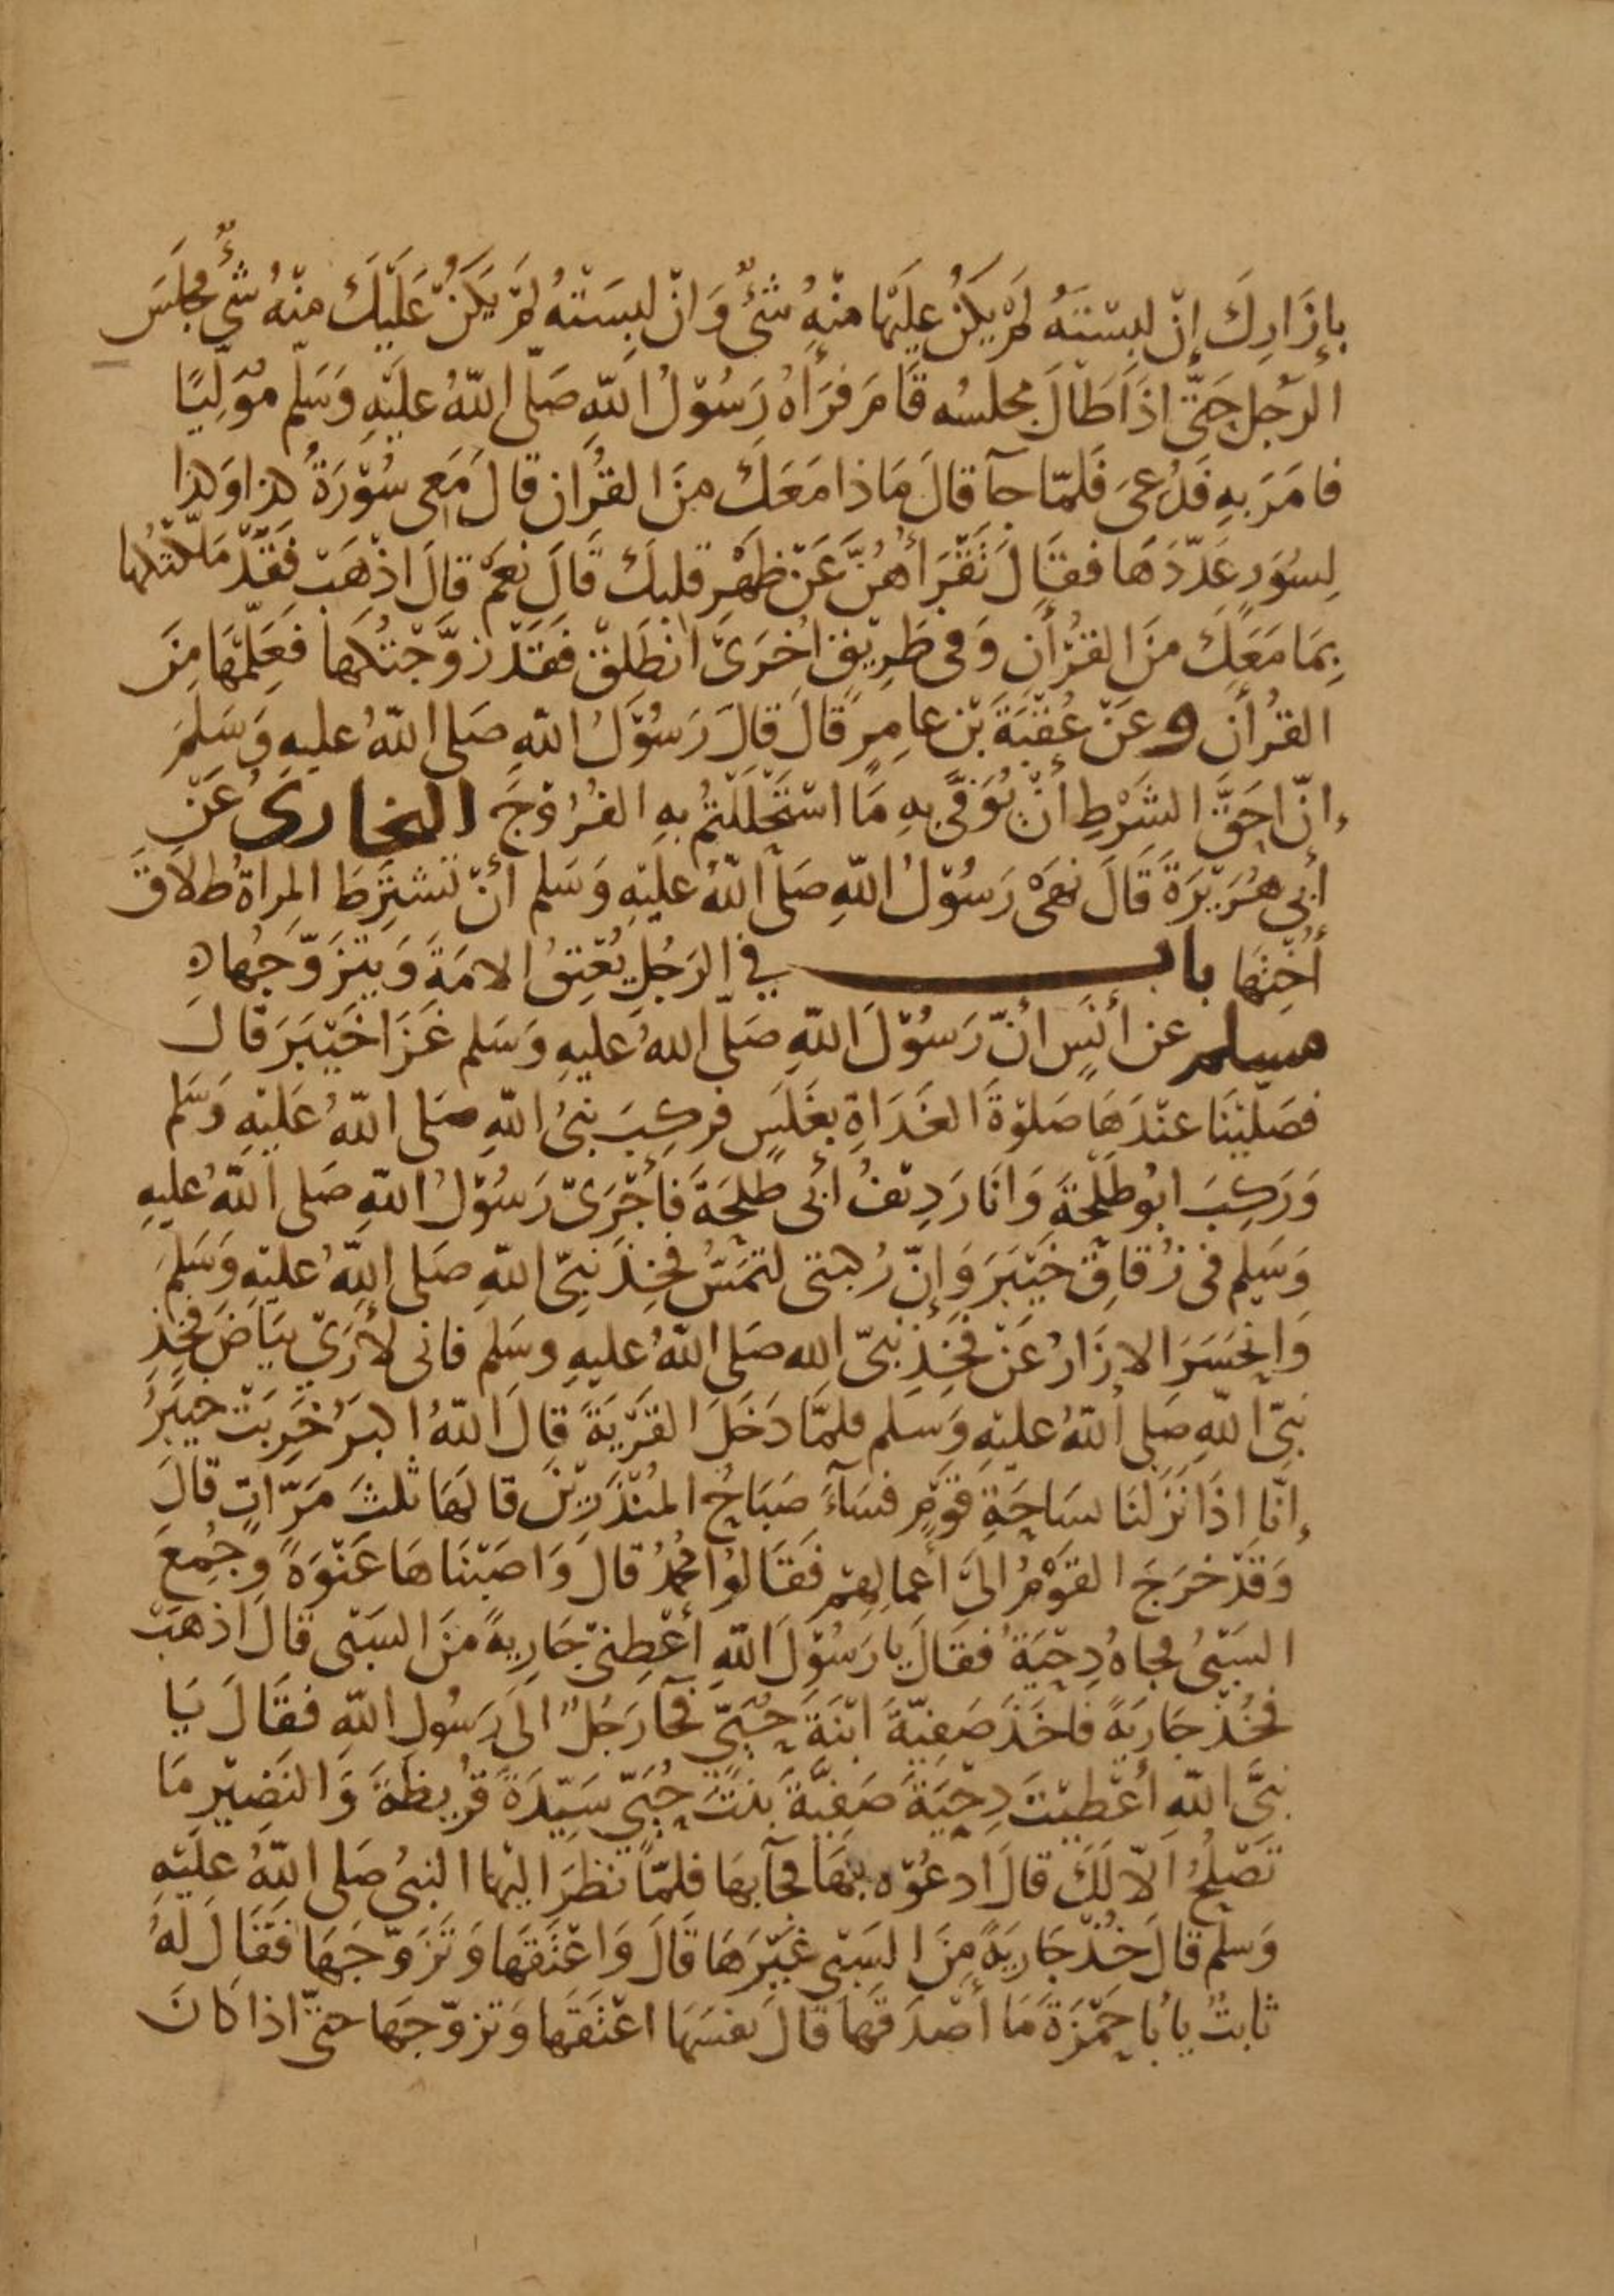 بِإِزَارِكَ إِنْ لَبِسْتَهُ لَمْ يَكُنْ عَلَيْهَا مِنْهُ شَيْءٌ وَانْ لَبِسَتْهُ لَمْ يَكُنْ عَلَيْكَ مِنْهُ شَيْءٌ فجلَسَ
الرَّجُل حَتَّى اذَا طَالَ مجلسُه قَامَ فَرَأَاهُ رَسُوْلُ اللّهِ صَلّى اللّهُ عَلَيْهِ وَسَلّم مُوَلِّيًا
فامَرَ بِهِ فَدُعِىَ فَلَمّا جآ قالَ مَاذا مَعَكَ مِنَ القُرْانِ قالَ مَعِى سُوْرَةُ كذا وَكذا
لِسُوَرٍ عَدّدَهَا فَقَالَ تَقْرَأُهُنَّ عَنْ ظَهْرِ قلبِكَ قَالَ نَعَمْ قالَ اذْهَبْ فَقَدْ مَلّكْتُكَها
بِمَا مَعَكَ مِنَ القُرْأنِ وَفى طَرِيْقٍ اخْرَىَ انْطَلِقْ فَقَدْ زَوَّجْتُكَها فَعَلِّمْهَا مِنَ
القُرْأن و عَنْ عُقْبَةَ بْنِ عامِرٍ قالَ قالَ رَسُوْلُ اللّهِ صَلى اللّهُ عليهِ وَسَلّمَ
إنّ احَقَّ الشَرْطِ أنْ يُوَفَّى بِهِ مَا اسْتَحْلَلْتُمْ بِهِ الفُرُوْجَ البخارى عَنْ
أبى هُرَيْرَةَ قَالَ نَهَى رَسُوْلُ اللّهِ صَلَى اللّهُ عَلَيْهِ وَسَلم أنْ تَشْتَرِطَ المرأةُ طلاَقَ
أُخْتِهَا باب في الرَجُلِ يُعْتِقُ الامَةَ وَيتزَوّجُها ه
مسلم عن أنَسٍ أنّ رَسُوْلَ اللّهِ صَلّى اللهُ عَليهِ وَسَلم غَزَا خَيْبَرَ قالَ
فصَلّيْنَا عنْدَهَا صَلوٰةَ الغَدَاةِ بِغَلَسٍ فركِبَ نبىُ اللّهِ صَلى اللّهُ عَليْهِ وَسَلّم
وَرَكِبَ ابُو طَلْحَةَ وَانَا رَدِيْفُ أبى طَلحَةَ فأجْرَىْ رَسُوْلُ اللّهِ صَلى اللّهُ عليهِ
وَسَلم فى زُقَاقِ خَيْبَرَ وَإنّ رُكبتى لتمَسُّ فخِذَ نَبِىّ اللّهِ صَلى اللّهُ عليْهِ وَسَلّمَ
وَانحَسَرَ الازَارُ عَنْ فَخِذِ نَبىّ الله صَلى اللّهُ عليهِ وسَلم فانى لأرَىْ بيَاضَ فخِذِ
نَبِىّ اللّهِ صَلى اللّهُ عليْهِ وَسَلم فلمّا دَخَلَ القَرْيَةَ قالَ اللّهُ اكبرُ خَرِبَتْ خيبَرُ
إنّا اذَا نَزَلنَا بسَاحَةِ قوْمٍ فسَآءَ صَبَاحُ المنْذَرِيْنَ قالهَا ثلثَ مَرّاتٍ قالَ
وَقَدْ خرَجَ القَوْمُ الىَ أعمالِهِمْ فَقَالوُا مُحَمّدُ قالَ وَاصَبْنَاهَا عَنْوَةً وَجُمِعَ
السَبْىُ فجاهُ دِحْيَةُ فقالَ يا رَسُوْلَ اللّهِ أعْطِنىْ جَارِيةً مِنَ السَبْى قالَ اذْهَبْ
فخُذْ جَارِيَةً فاخَذَ صَفِيّةَ ابْنَةَ حُيَىّ فجآ رَجُلٌ الىَ رَسُولِ اللّهِ فقَالَ يَا
نبىَّ اللّهِ أعْطَيْتَ دِحْيَةَ صَفِيّةَ بِنْتَ حُيَىّ سَيِّدَةَ قُرَيظَةَ وَالنَضِيْرِ مَا
تَصْلُحُ الّا لَكَ قالَ ادْعُوْه بِهَا فجآ بهَا فلمّا نَظرَ اليْها النبىُ صَلى اللّهُ عليْهِ
وَسَلم قالَ خُذْ جَارِيَةً مِنَ السَبْىِ غَيْرَهَا قالَ وَاعْتَقَهَا وَتَزَوّجَهَا فَقَالَ لَهُ
ثابتُ يا بُا حَمْزَةَ مَا أصْدَقهَا قالَ نفسَهَا اعْتَقَها وَتزَوّجَها حتىّ اذا كَانَ